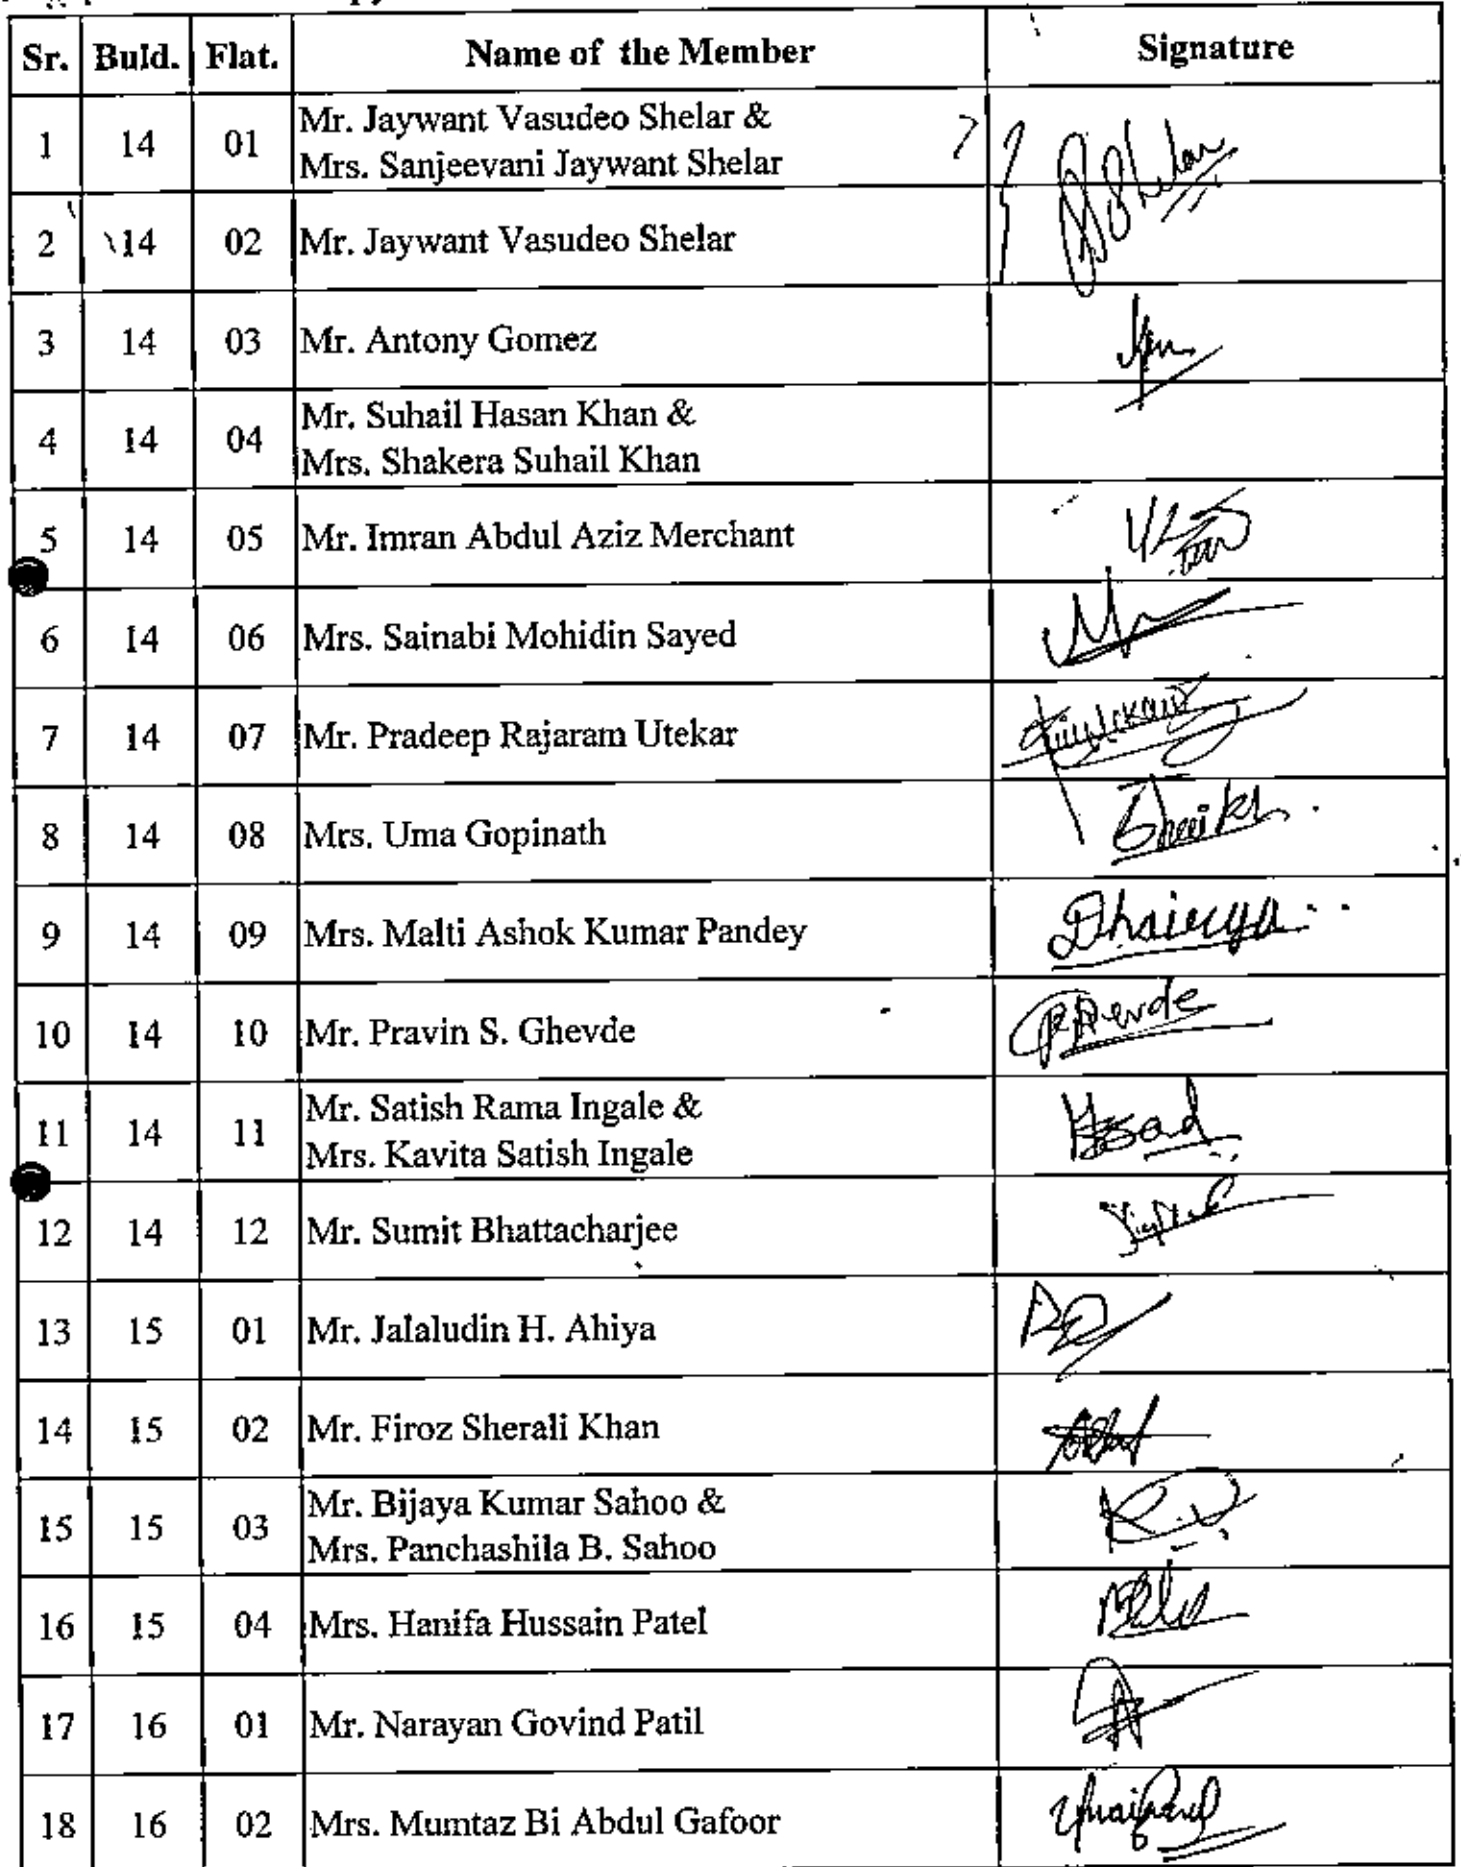 Sr. Buld. Flat. Name of the Member Signature
1 14 01 Mr. Jaywant Vasudeo Shelar &
Mrs. Sanjeevani Jaywant Shelar
2 14 02 Mr. Jaywant Vasudeo Shelar
3 14 03 Mr. Antony Gomez
4 14 04 Mr. Suhail Hasan Khan &
Mrs. Shakera Suhail Khan
5 14 05 Mr. Imran Abdul Aziz Merchant
6 14 06 Mrs. Sainabi Mohidin Sayed
7 14 07 Mr. Pradeep Rajaram Utekar
8 14 08 Mrs. Uma Gopinath
9 14 09 Mrs. Malti Ashok Kumar Pandey
10 14 10 Mr. Pravin S. Ghevde
11 14 11 Mr. Satish Rama Ingale &
Mrs. Kavita Satish Ingale
12 14 12 Mr. Sumit Bhattacharjee
13 15 01 Mr. Jalaludin H. Ahiya
14 15 02 Mr. Firoz Sherali Khan
15 15 03 Mr. Bijaya Kumar Sahoo &
Mrs. Panchashila B. Sahoo
16 15 04 Mrs. Hanifa Hussain Patel
17 16 01 Mr. Narayan Govind Patil
18 16 02 Mrs. Mumtaz Bi Abdul Gafoor